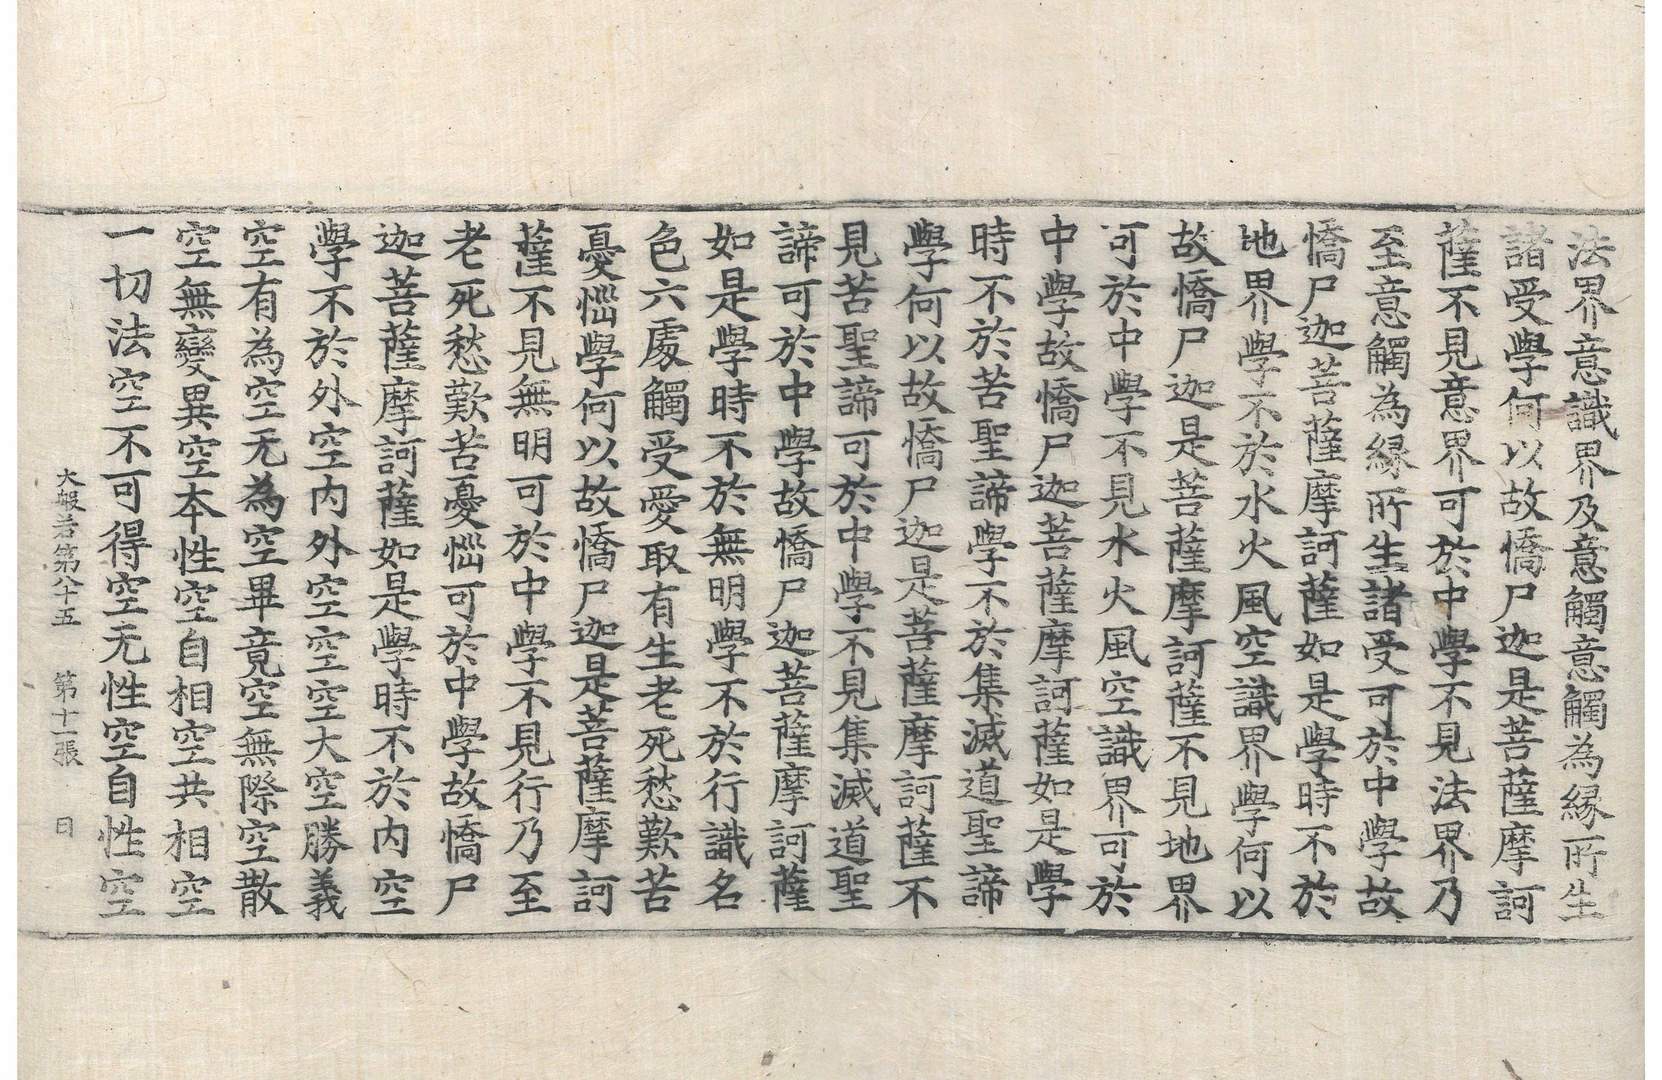 法界意識界及意觸意觸為緣所生
諸受學何以故憍尸迦是菩薩摩訶
薩不見意界可於中學不見法界乃
至意觸為緣所生諸受可於中學故
憍尸迦菩薩摩訶薩如是學時不於
地界學不於水火風空識界學何以
故憍尸迦是菩薩摩訶薩不見地界
可於中學不見水火風空識界可於
中學故憍尸迦菩薩摩訶薩如是學
時不於苦聖諦學不於集滅道聖諦
學何以故憍尸迦是菩薩摩訶薩不
見苦聖諦可於中學不見集滅道聖
諦可於中學故憍尸迦菩薩摩訶薩
如是學時不於無明學不於行識名
色六處觸受愛取有生老死愁歎苦
憂惱學何以故憍尸迦是菩薩摩訶
薩不見無明可於中學不見行乃至
老死愁歎苦憂惱可於中學故憍尸
迦菩薩摩訶薩如是學時不於內空
學不於外空內外空空空大空勝義
空有為空无為空畢竟空無際空散
空無變異空本性空自相空共相空
一切法空不可得空无性空自性空
大般若第八十五 第十一張 日